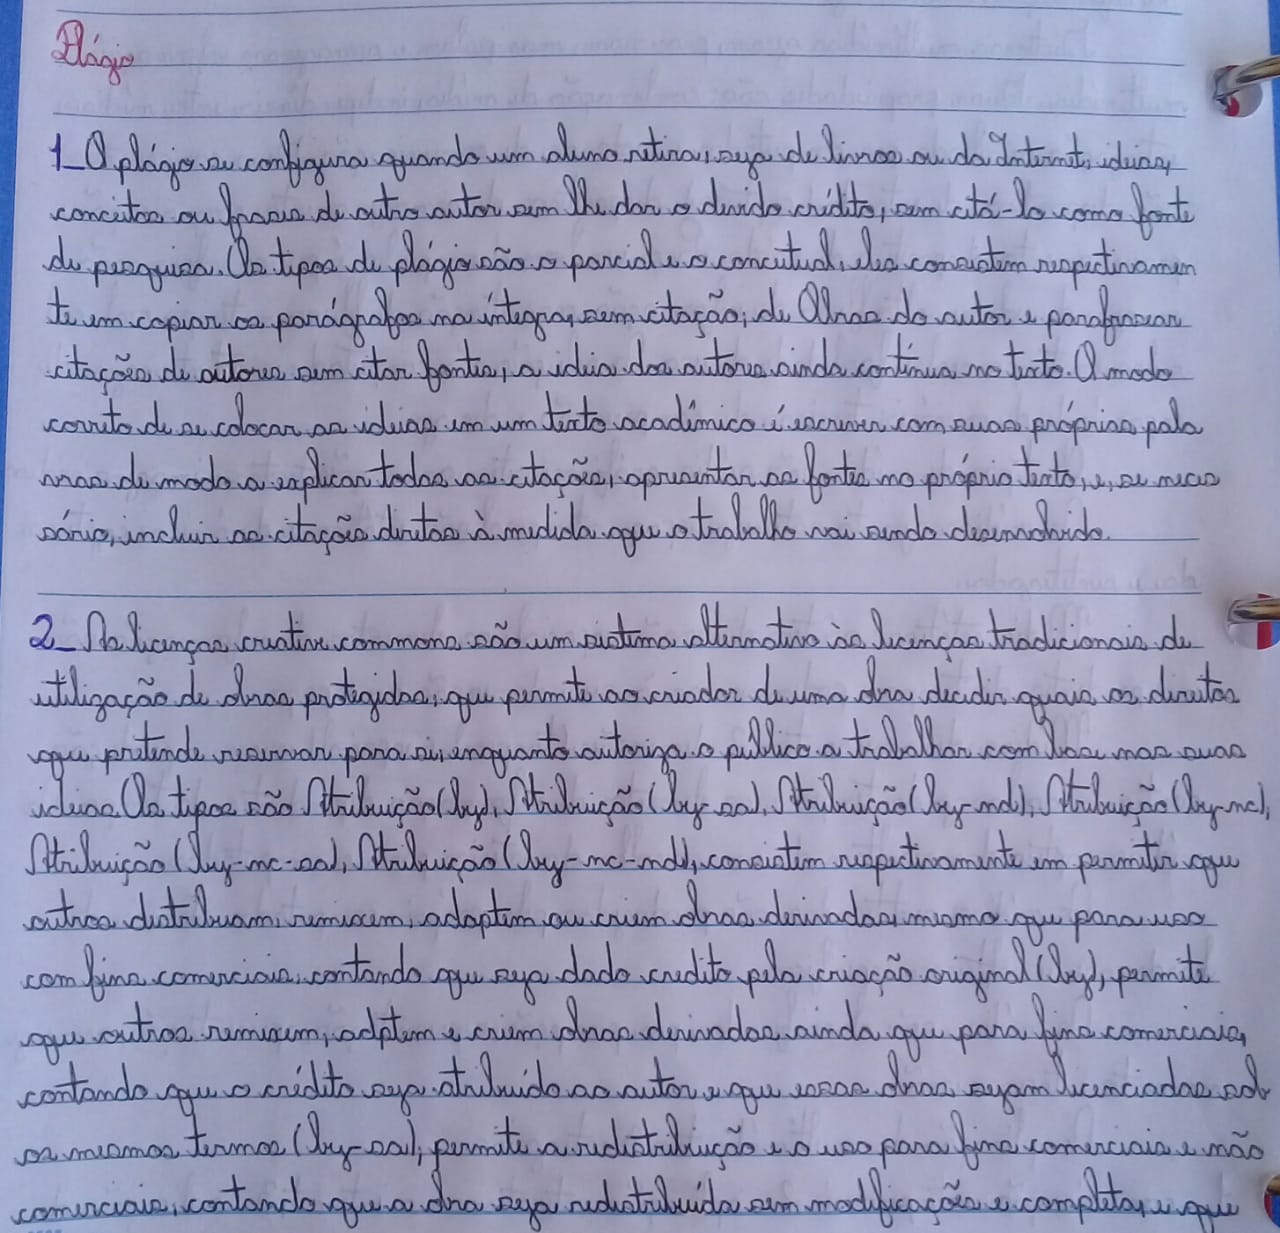 Plágio
1_O plágio se configura quando um aluno retira, seja de livros ou da Internet, ideias,
conceitos ou frases de outro autor sem lhe dar o devido crédito, sem citá-lo como fonte
de pesquisa. Os tipos de plágio são o parcial e o conceitual, eles consistem respectivamen
te em copiar os parágrafos na íntegra, sem citação, de Obras do autor e parafrasear
citações de autores sem citar fontes, a ideia dos autores ainda contínua no texto. O modo
correto de se colocar as ideias em um texto acadêmico é escrever com suas próprias pala
vras de modo a explicar todas as citações, apresentar as fontes no próprio texto, e, se neces
sário, incluir as citações diretas à medida que o trabalho vai sendo desenvolvido.
2_As licenças creative commons são um sistema alternativo às licenças tradicionais de
utilização de obras protegidas, que permite ao criador de uma obra decidir quais os direitos
que pretende reservar para si, enquanto autoriza o público a trabalhar com base nas suas
ideias. Os tipos são Atribuição (by), Atribuição (by-sa), Atribuição (by-nd), Atribuição (by-nc),
Atribuição (by-nc-sa), Atribuição (by-nc-nd), consistem respectivamente em permitir que
outros distribuam, remixem, adaptem ou criem obras derivadas, mesmo que para uso
com fins comerciais, contando que seja dado credito pela criação original (by), permite
que outros remixem, adptem e criem obras derivadas ainda que para fins comerciais,
contando que o crédito seja atribuído ao autor e que essas obras sejam licenciadas sob
os mesmos termos (by-sa), permite a redistribuição e o uso para fins comerciais e não
comerciais, contando que a obra seja redistribuída sem modificações e completa, e que